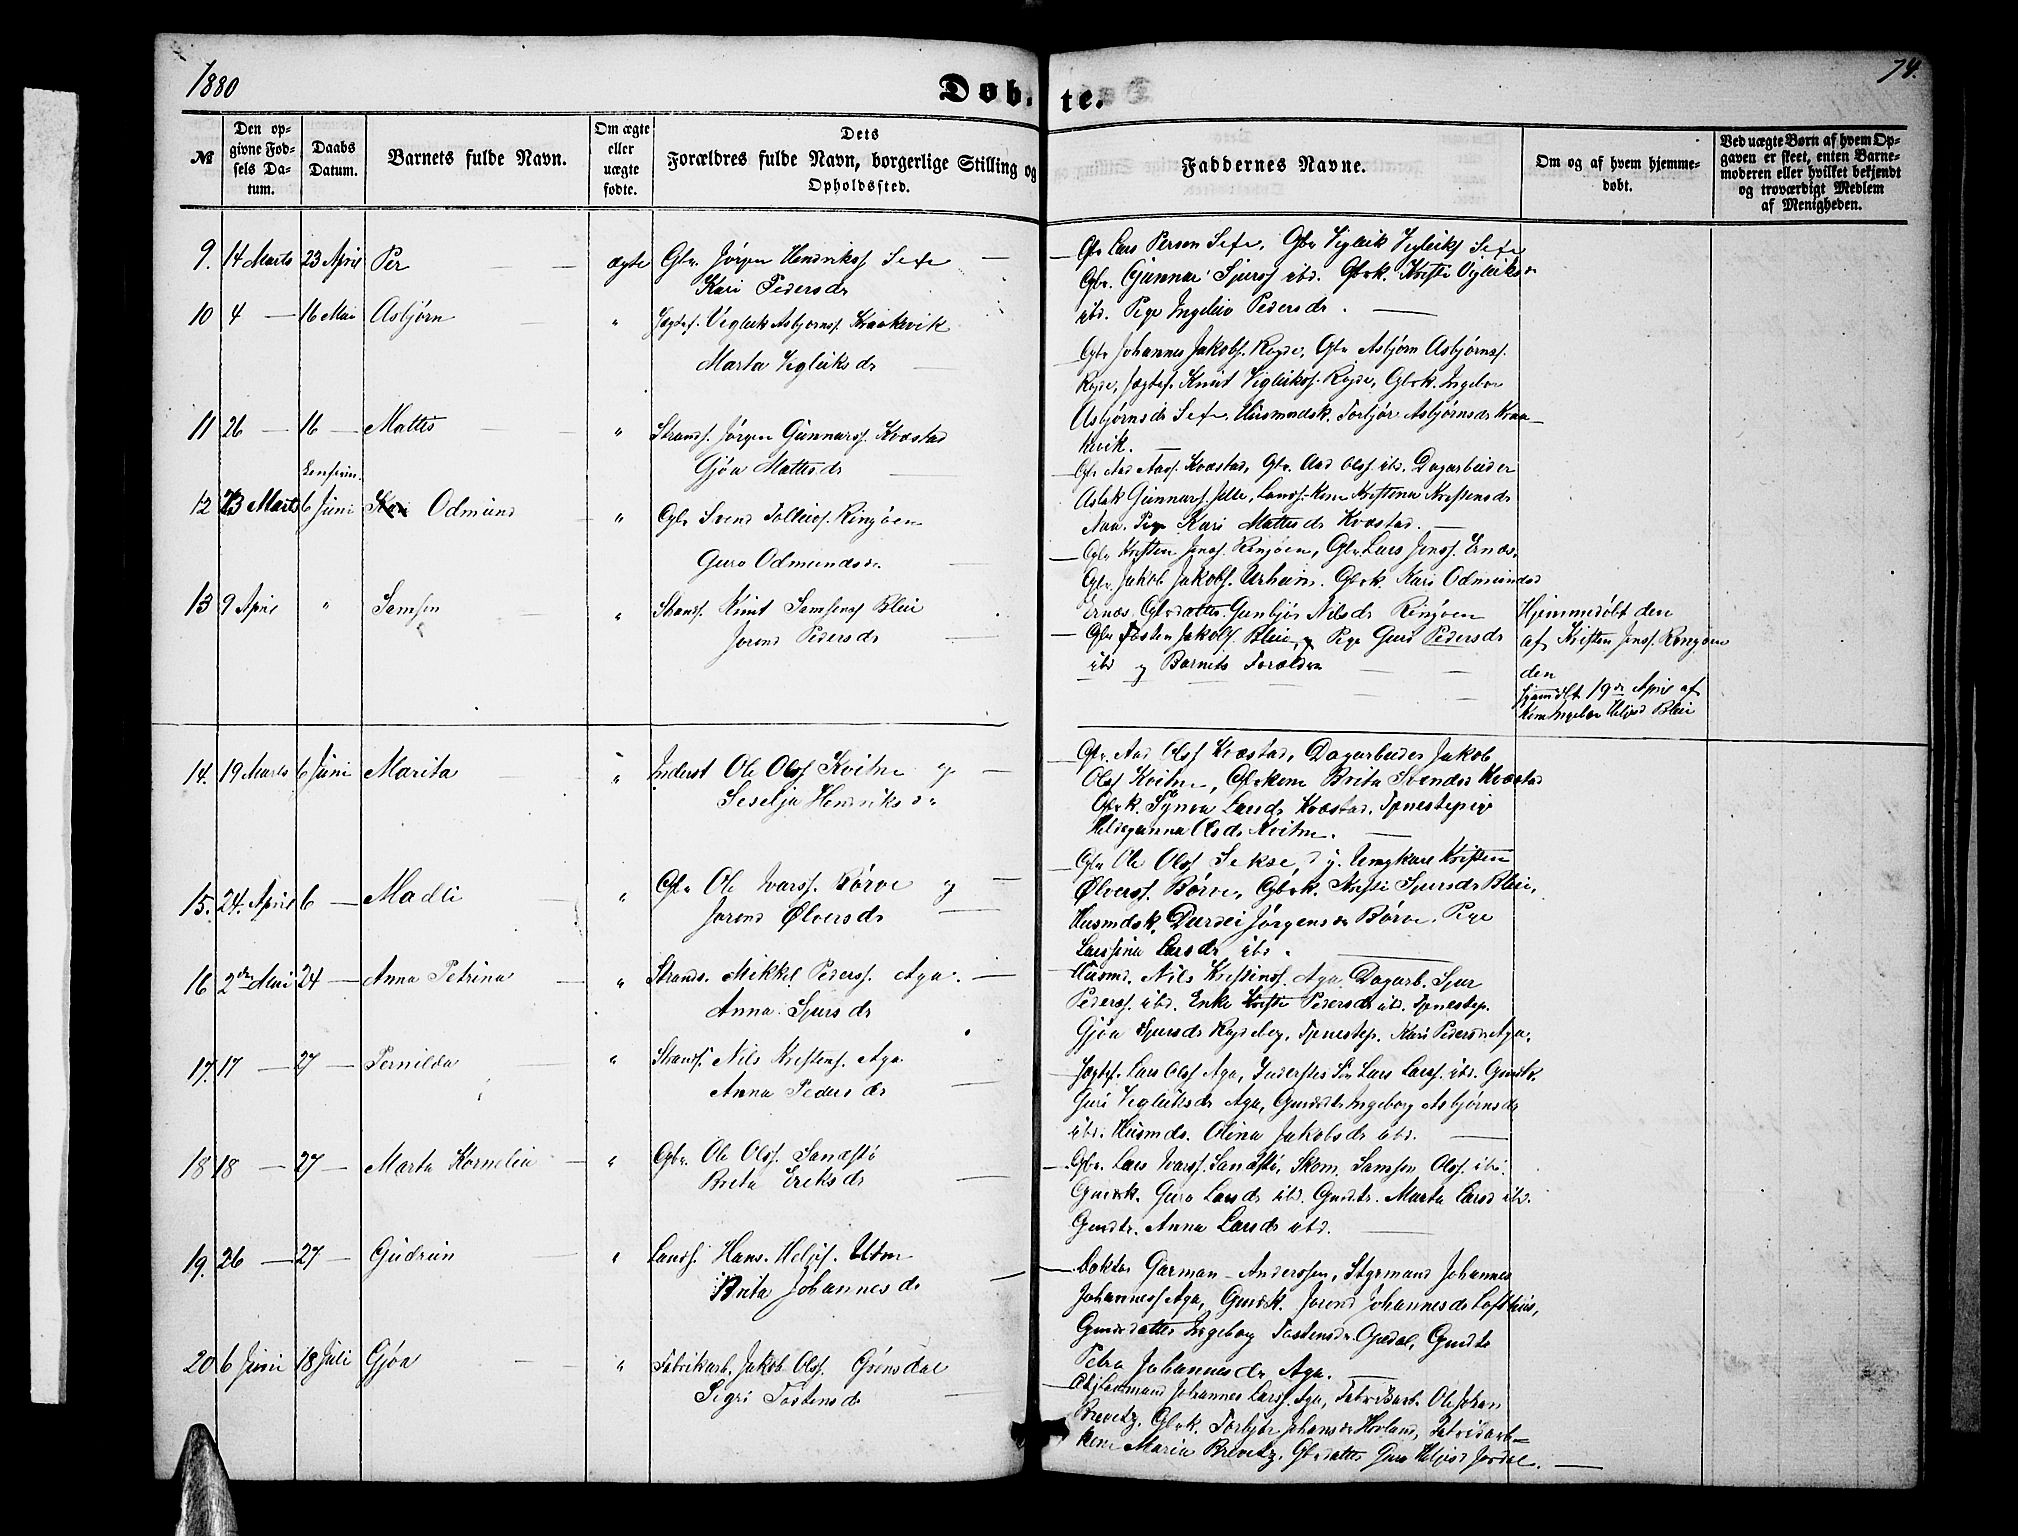 1880
74.
Døbte.
№
Den opgivne Fødsels Datum.
Daabs Datum.
Barnets fulde Navn.
Om ægte eller uægte fødte.
Dets Forældres fulde Navn, borgerlige Stilling og Opholdssted.
Faddernes Navne.
Om og af hvem hjemmedøbt.
Ved uægte Børn af hvem Opgaven er skeet, enten Barnemoderen eller hvilket bekjendt og troværdigt Medlem af Menigheden.
9. 14 Marts 23 April Per — — ægte Gbr. Jørgen Hendrikss. Sexe —
Kari Pedersdr
Gbr Lars Person Sexe, Gbr Vigleik Vigleiks Sexe
Gbr. Gunnar Sjurss ibd. Gbrk. Kristi Vigleiksdr
ibd. Pige Ingeleiv Pedersdr. —
10 4 — 16 Mai Asbjørn — " Jægtef. Vigleik Asbjørnss. Kraakevik
Marta Vigleiksdr —
Gbr Johannes Jakobs. Røyde, Gbr Asbjørn Asbjørnss.
Røyde, Jægtef. Knut Vigleikss. Røyde, Gbrk. Ingebor
Asbjørnsdr Sexe, Husmndsk. Torbjør Asbjørnsdr Kraa-
kevik. —
11 26 — 16 — Mattis — — " Strands. Jørgen Gunnarss. Kvæstad
Gjøa Mattisdr —
Gbr Aad Aass. Kvæstad, Gbr. Aad Olss ibd. Dagarbeider
Aslak Gunnarss. Jelle, Landss. Kone Kristina Kristensdr
Aaa. Pige Kari Mattisdr Kvæstad. —
12 23 Marts 6 Juni Odmund — " Gbr Svend Tolleivs. Ringøen
Guro Odmundsdr. —
Gbr Kristen Jonss. Ringøen, Gbr Lars Jonss. Ernæs,
Gbr. Jakob Jakobs. Urheim. Gbrk. Kari Odmundsd
Ernæs, Gbrdatter Gunbjør Nilsdr Ringøen
Hjemmedøbt den
af Kristen Jonss. Ringøen
13 9 April " Samson — " Strands. Knut Samsonss Bleie
Jorond Pedersdr —
— Gbr Tosten Jakobs. Bleie, og Pige Guro Pedersdr
ibd og Barnets Forældre — —
den
hjemdbt 19de April af
Kone Ingebor Heljesd Bleie
14. 19 Marts 6 Juni Marita — " Inderst Ole Olss Kvitne og —
Seselja Henriksdr
Gbr. Aad Olss Kvæstad, Dagarbeider Jakob
Olss Kvitne, Gbrkone Brita Svendsd Kvæstad
Gbrk. Synva Larsdr Kvæstad. Tjenestepige
Hildeganna Olsdr Kvitne. —
15. 24. April 6 — Madli — " Gbr Ole Ivarss. Børve og —
Jorond Ølversdr —
Gbr Ole Olss Sekse, d. y. Ungkarl Kristen
Ølverss. Børve, Gbrk. Kristi Sjursdr Bleie,
Husmdsk. Durdei Jørgensdr Børve. Pige
Larssina Larsdr ibd.
16 2den Mai 24 — Anna Petrina — " Strands. Mikkel Pederss. Aga. —
Anna Sjursdr
Husmd. Nils Kristenss. Aga. Dagarb. Sjur
Pederss. ibd. Enke Kristi Pedersdr ibd. Tjenestep.
Gjøa Sjursdr Røydeberg, Tjenestep. Kari Pedersdr Aga.
17. 17 — 27 — Pernilda — " Strands. Nils Kristens. Aga.
Anna Pedersdr —
Jægtef. Lars Olss Aga, Inderstes Søn Lars Larss. ibd. Gmdk.
Guri Vigleiksdr Aga, Gmddtr Ingeborg Asbjørnsdr
ibd. Husmds. Olina Jakobsdr ibd. —
18 18 — 27 — Marta Kornelia — " Gbr. Ole Olss. Sandstø
Brita Eriksdr —
— Gbr. Lars Ivarss. Sandstø, Skom. Samson Olss. ibd.
Gmdk. Guro Larsdr ibd. Gmdtr. Marta Larsd ibd.
Gmdtr. Anna Larsdr ibd. —
19. 26 — 27 — Gudrun — " Landh. Hans. Heljes. Utne
Brita Johannesdr —
— Doktor Garman-Anderssen, Styrmand Johannes
Johanness Aga, Gmdk. Jorond Johannesdr Lofthus,
Gmdsdatter Ingeborg Tostensdr Opedal, Gmdtr
Petra Johannesdr Aga. —
20 6 Juni 18 Juli Gjøa — " Fabrikarb. Jakob Olss. Grønsdal
Sigri Tostensdr —
Johannes Larss. Aga, Fabrikarb. Ole Johan
Brevetz. Gbrk. Torbjør Johansdr Hovland, Fabrikarb-
kone Maria Brevetz. Gbrdatter Guro Heljesd Jordal. —